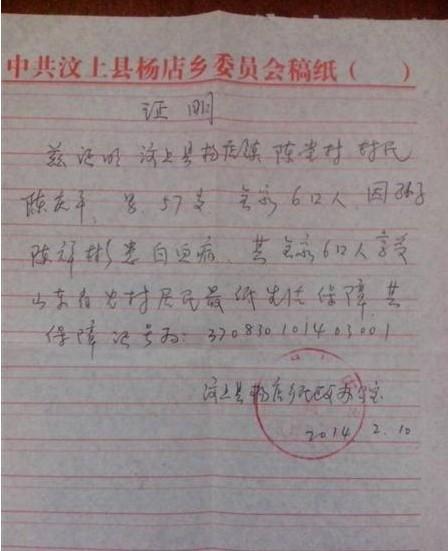 中共汶上县杨店乡委员会稿纸（ ）
证明
兹证明 汶上县杨店镇 陈堂村 村民
陈庆平，男，57岁 全家6口人 因孙子
陈祥彬患白血病，其全家6口人享受
山东省农村居民最低生活保障，其
保障证号为：370830101403001
汶上县杨店乡民政办公室
2014 2.10